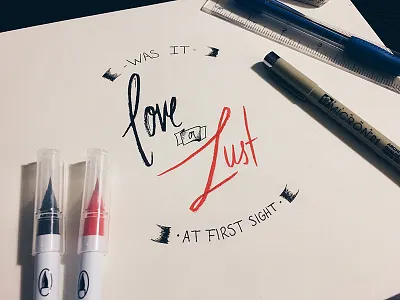 ·WAS IT·
Love
or
Lust
·AT FIRST SIGHT·
MICRON